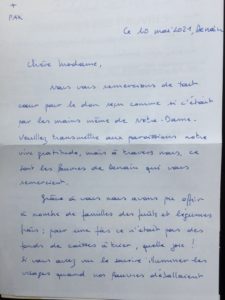 +
PAX
Ce 10 mai 2021, Denain
Chère Madame,
Nous vous remercions de tout
cœur pour le don reçu comme si c'était
par les mains même de Notre-Dame.
Veuillez transmettre aux paroissiens notre
vive gratitude, mais à travers nous, ce
sont les pauvres de Denain qui vous
remercient.
Grâce à vous nous avons pu offrir
à nombre de familles des fruits et légumes
frais ; pour une fois ce n'était pas des
fonds de caisses à trier, quelle joie !
Si vous aviez vu le sourire illuminer les
visages quand nos pauvres déballaient